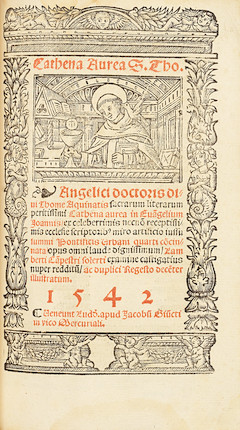 Cathena Aurea S. Tho.
Angelici doctoris di
ui Thome Aquinatis sacrarum literarum
peritissimi Cathena aurea in Euāgelium
Joannis ex celeberrimis necnō receptissi
mis ecclesie scriptoribꝰ miro artificio iussu
summi Pontificis Urbani quarti cōcin
nata opus omni laude dignissimum / Lam
berti Cāpestri solerti examine castigatius
nuper redditū / ac duplici Regesto decēter
illustratum.
1542
Veneunt Lugd. apud Jacobū Giūcti
in vico Mercuriali.